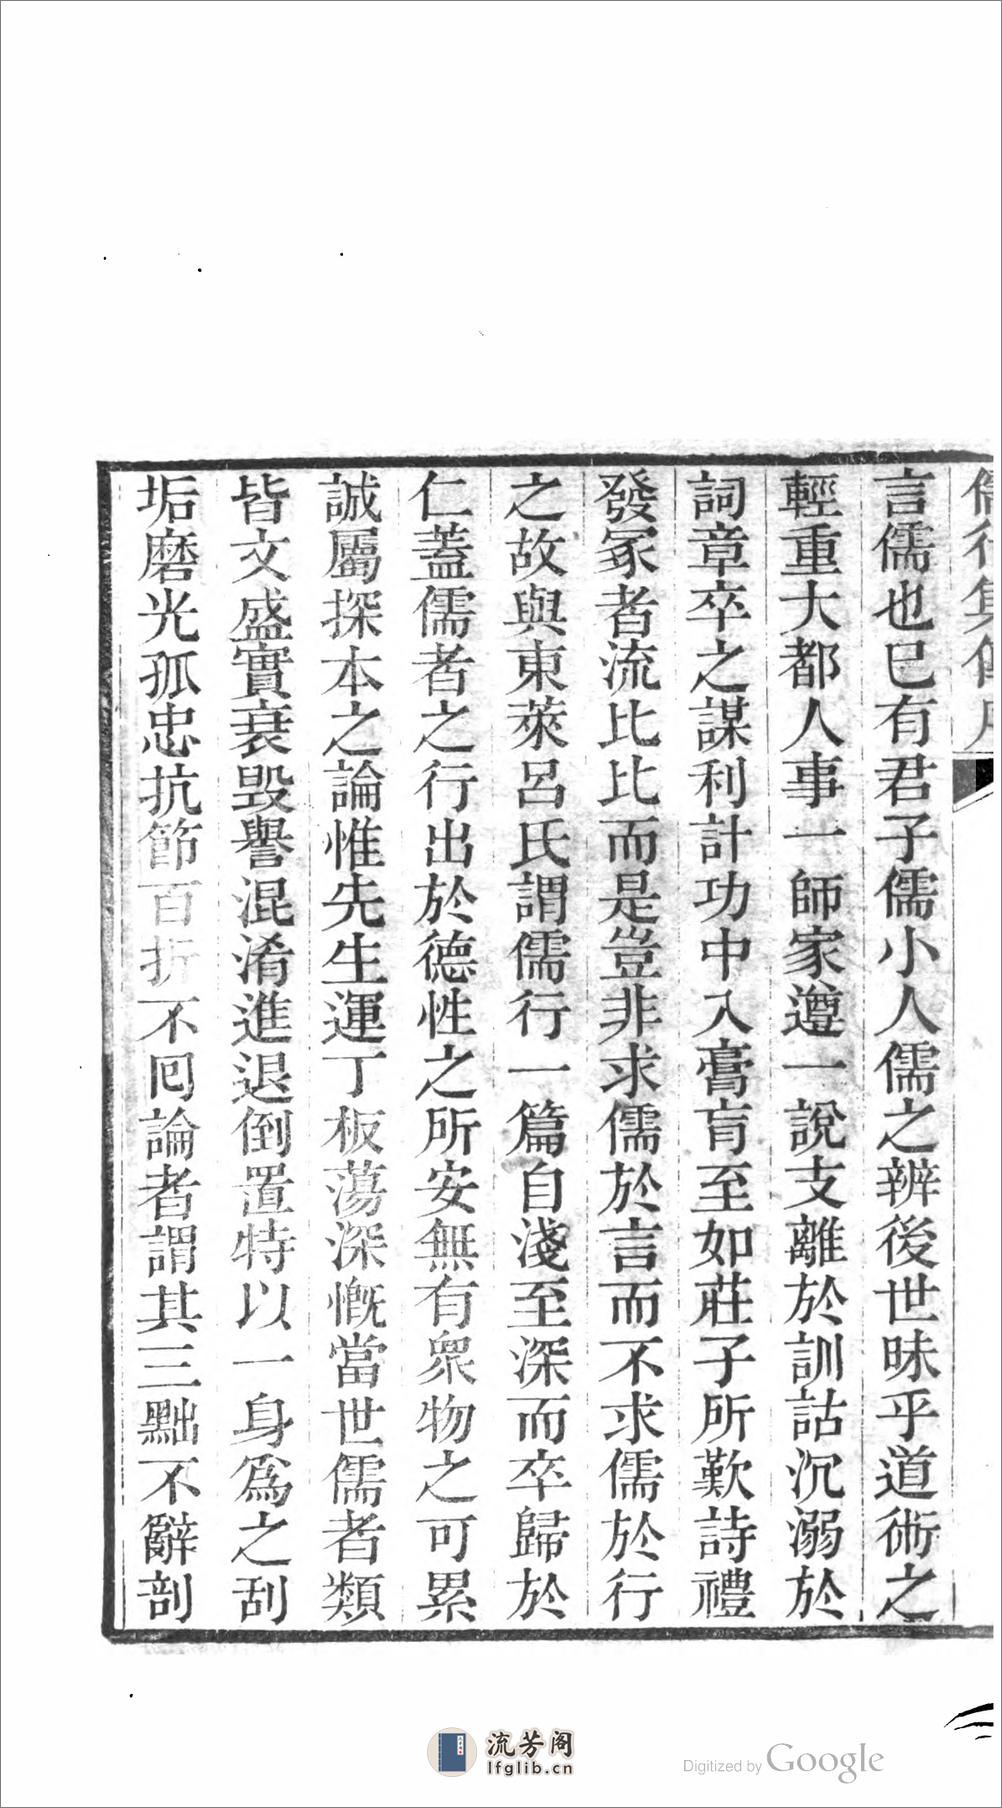 儒行集傳序
言儒也已有君子儒小人儒之辨後世昧乎道術之
輕重大都人事一師家遵一說支離於訓詁沉溺於
詞章卒之謀利計功中入膏肓至如莊子所歎詩禮
發冢者流比比而是豈非求儒於言而不求儒於行
之故與東萊呂氏謂儒行一篇自淺至深而卒歸於
仁蓋儒者之行出於德性之所安無有衆物之可累
誠屬探本之論惟先生運丁板蕩深慨當世儒者類
皆文盛實衰毁譽混淆進退倒置特以一身爲之刮
垢磨光孤忠抗節百折不回論者謂其三黜不辭剖
流芳阁
lfglib.cn
Digitized by Google